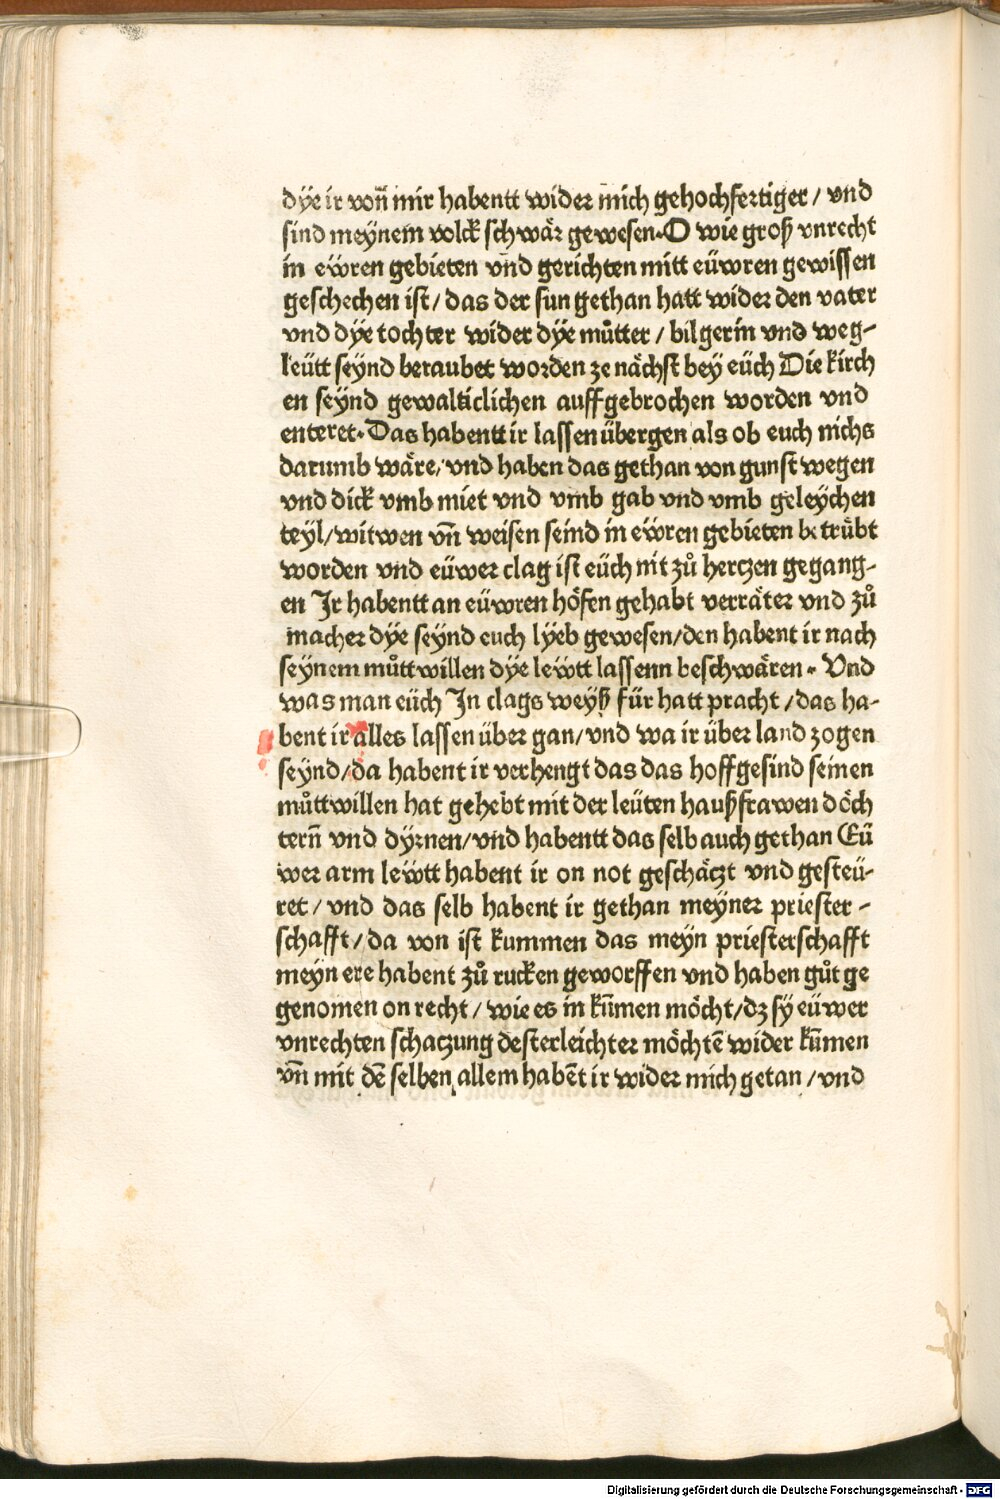 dÿe ir von̄ mir habentt wider mich gehochfertiget / vnd
sind meynem volck schwär gewesen. O wie groß vnrecht
in eẅren gebieten vnd gerichten mitt eüwren gewissen
geschechen ist / das der sun gethan hatt wider den vater
vnd dÿe tochter wider dÿe můtter / bilgerin vnd weg-
leütt seÿnd beraubet worden ze nächst beÿ eüch Die kirch
en seÿnd gewalticlichen auffgebrochen worden vnd
enteret. Das habentt ir lassen übergen als ob euch nichs
darumb wäre / vnd haben das gethan von gunst wegen
vnd dick vmb miet vnd vmb gab vnd vmb geleÿchen
teÿl / witwen vn̄ weisen seind in eẅren gebieten betrübt
worden vnd eüwer clag ist eüch nit zů hertzen gegang-
en Jr habentt an eüwren höfen gehabt verräter vnd zů
macher dÿe seÿnd euch lÿeb gewesen / den habent ir nach
seÿnem můttwillen dÿe leẅtt lassenn beschwären. Vnd
was man eüch Jn clags weÿß für hatt pracht / das ha-
bent ir alles lassen über gan / vnd wa ir über land zogen
seÿnd / da habent ir verhengt das das hoffgesind seinen
můttwillen hat gehebt mit der leüten haußfrawen döch
tern̄ vnd dÿrnen / vnd habentt das selb auch gethan Eü
wer arm leẅtt habent ir on not geschäczt vnd gesteü-
ret / vnd das selb habent ir gethan meÿner priester-
schafft / da von ist kummen das meÿn priesterschafft
meÿn ere habent zů rucken geworffen vnd haben gůt ge
genomen on recht / wie es in kūmen möcht / dz sÿ eüwer
vnrechten schaczung desterleichter möchtē wider kūmen
vn̄ mit dē selben allem habēt ir wider mich getan / vnd
Digitalisierung gefördert durch die Deutsche Forschungsgemeinschaft - DFG